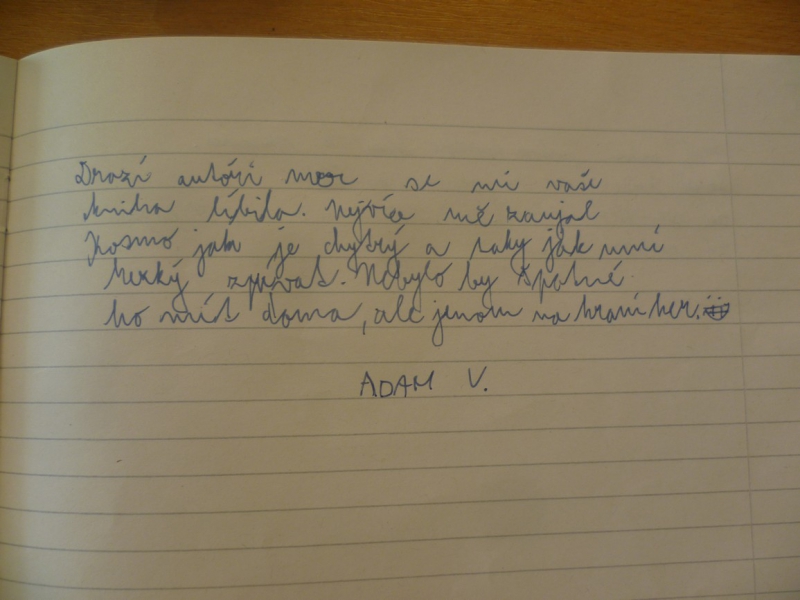 Drazí autóři moc se mi vaše
kniha líbila. Nejvíce mě zaujal
Kosmo jak je chytrý a taky jak umí
hezký zpívat. Nebylo by špatné
ho mít doma, ale jenom na hraní her.
ADAM V.